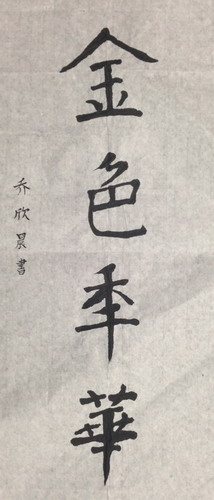 金色秊華
乔欣晨書